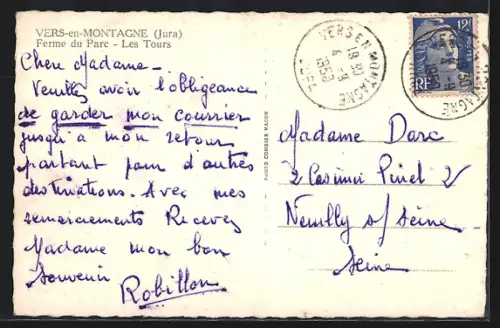 VERS-en-MONTAGNE (Jura)
Ferme du Parc - Les Tours
Chere Madame -
Veuillez avoir l'obligeance
de garder mon courrier
jusqu'a mon retour
partant pour d'autres
destinations. Avec mes
remerciements Recevez
Madame mon bon
Souvenir
Robillon
PHOTO COMBIER MACON
VERS EN MONTAGNE
18 30
4 -9
1953
JURA
12F
POSTES
RF
Madame Darc
2 Casimir Pinel 2
Neuilly s/ Seine
Seine